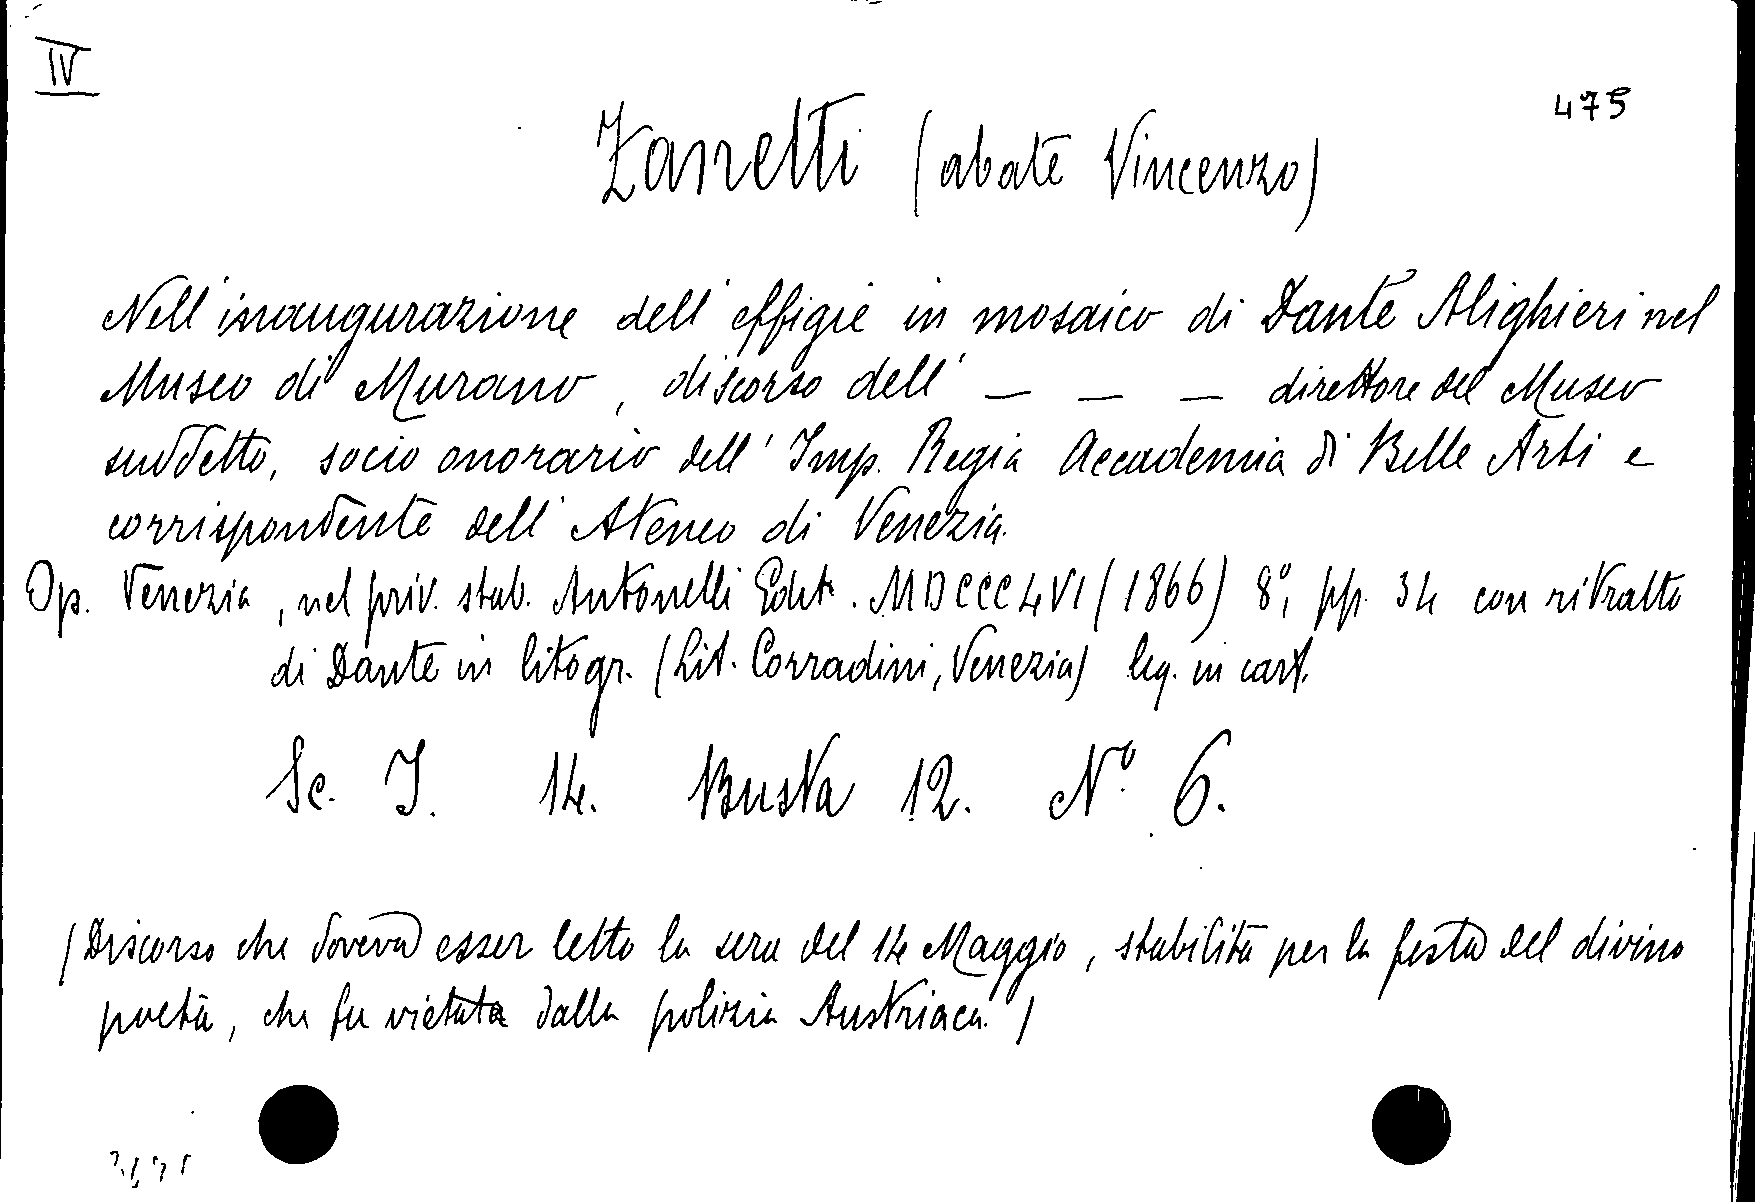 IV
475
Zanetti (abate Vincenzo)
Nell'inaugurazione dell'effigie in mosaico di Dante Alighieri nel
Museo di Murano, discorso dell' _ _ _ direttore del Museo
suddetto, socio onorario dell'Imp. Regia Accademia di Belle Arti e
corrispondente dell'Ateneo di Venezia.
Op. Venezia, nel priv. stab. Antonelli Edit. MDCCCLVI (1866) 8º, pp. 34 con ritratto
di Dante in litogr. (Lit. Corradini, Venezia) leg. in cart.
Sc. I. 14. Busta 12. Nº 6.
(Discorso che doveva esser letto la sera del 14 Maggio, stabilita per la festa del divino
poeta, che fu vietata dalla polizia Austriaca.)